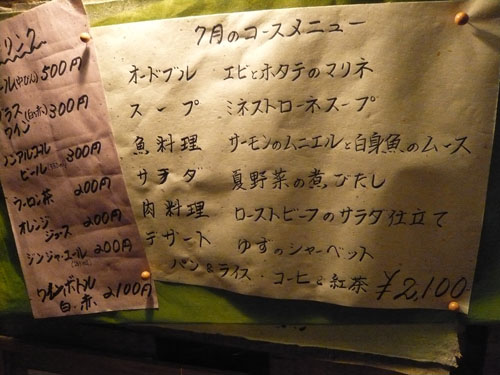 7月のコースメニュー
オードブル エビとホタテのマリネ
スープ ミネストローネスープ
魚料理 サーモンのムニエルと白身魚のムース
サラダ 夏野菜の煮びたし
肉料理 ローストビーフのサラダ仕立て
デザート ゆずのシャーベット
パン&ライス・コーヒと紅茶 ¥2,100
ール(中びん) 500円
グラス(白・赤) 300円
ワイン
ノンアルコール 300円
ビール
ウーロン茶 200円
オレンジ
ジュース 200円
ジンジャーエール 200円
ワインボトル
白・赤 2100円